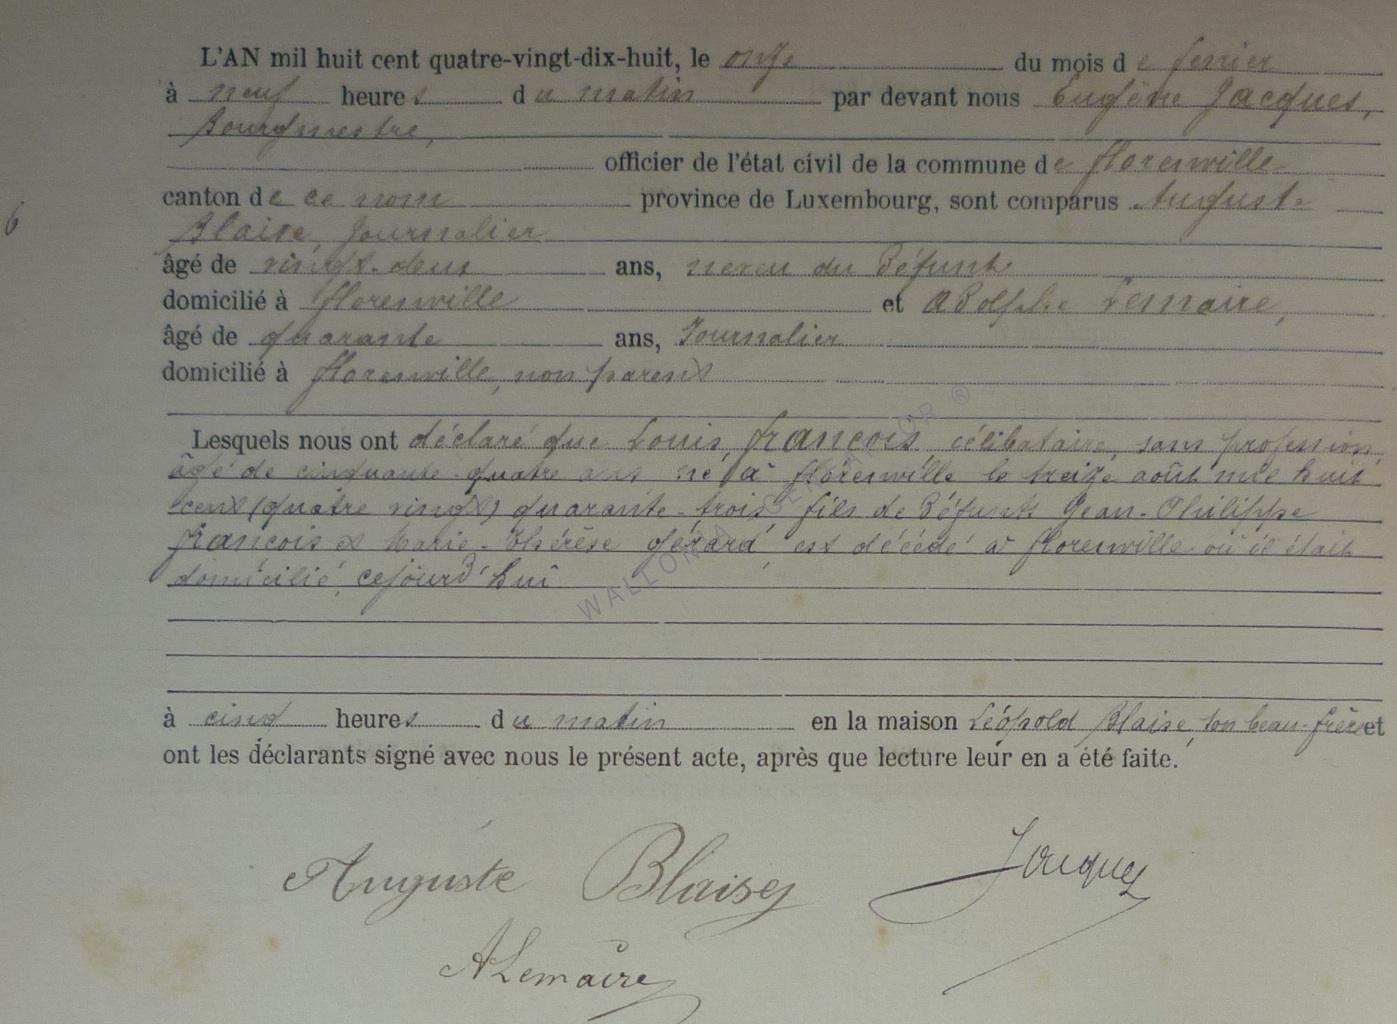 L'AN mil huit cent quatre-vingt-dix-huit, le onze du mois de fevrier
à neuf heures du matin par devant nous Eugène Jacques,
Bourgmestre,
officier de l'état civil de la commune de florenville
canton de ce nom province de Luxembourg, sont comparus Auguste
6
Blaise, Journalier
âgé de vingt-deux ans, neveu du Défunt
domicilié à florenville et Adolphe Lemaire,
âgé de quarante ans, Journalier
domicilié à florenville, non parents
Lesquels nous ont déclaré que Louis, françois, célibataire, sans profession,
âgé de cinquante-quatre ans né à florenville le treize août mil huit
cent (quatre vingt) quarante-trois, fils de Défunts Jean-Philippe
françois et Marie-Thérèse gérard, est décédé à florenville où il était
domicilié, cejourd'hui
à cinq heures du matin en la maison Léopold Blaise, son beau-frère et
ont les déclarants signé avec nous le présent acte, après que lecture leur en a été faite.
Auguste Blaise Jacques
ALemaire